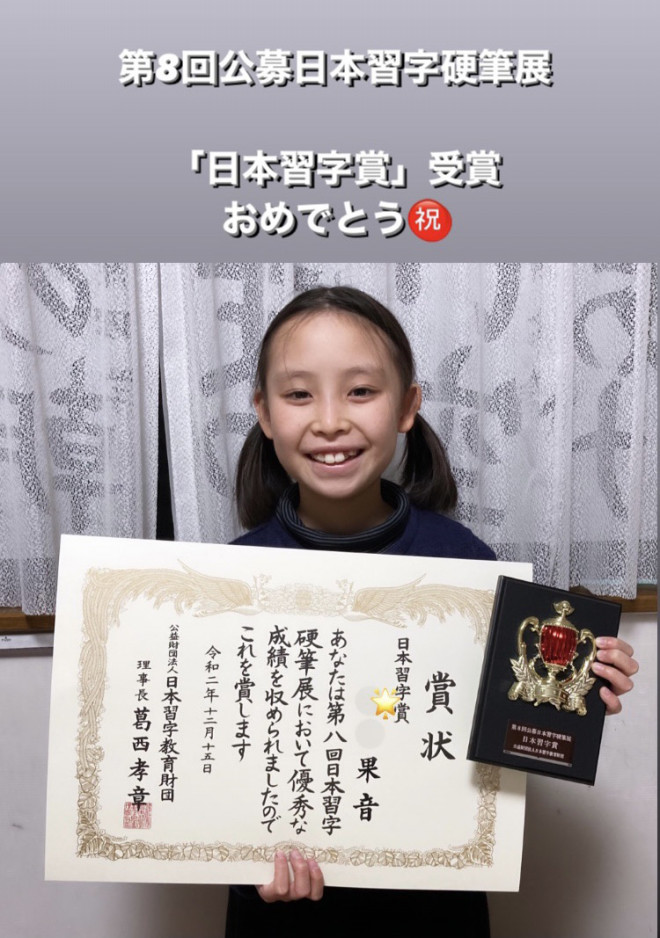 第8回公募日本習字硬筆展
「日本習字賞」受賞
おめでとう㊗
賞状
日本習字賞
果音
あなたは第八回日本習字
硬筆展において優秀な
成績を収められましたので
これを賞します
令和二年十二月十五日
公益財団法人日本習字教育財団
理事長 葛西孝章
第8回公募日本習字硬筆展
日本習字賞
公益財団法人日本習字教育財団